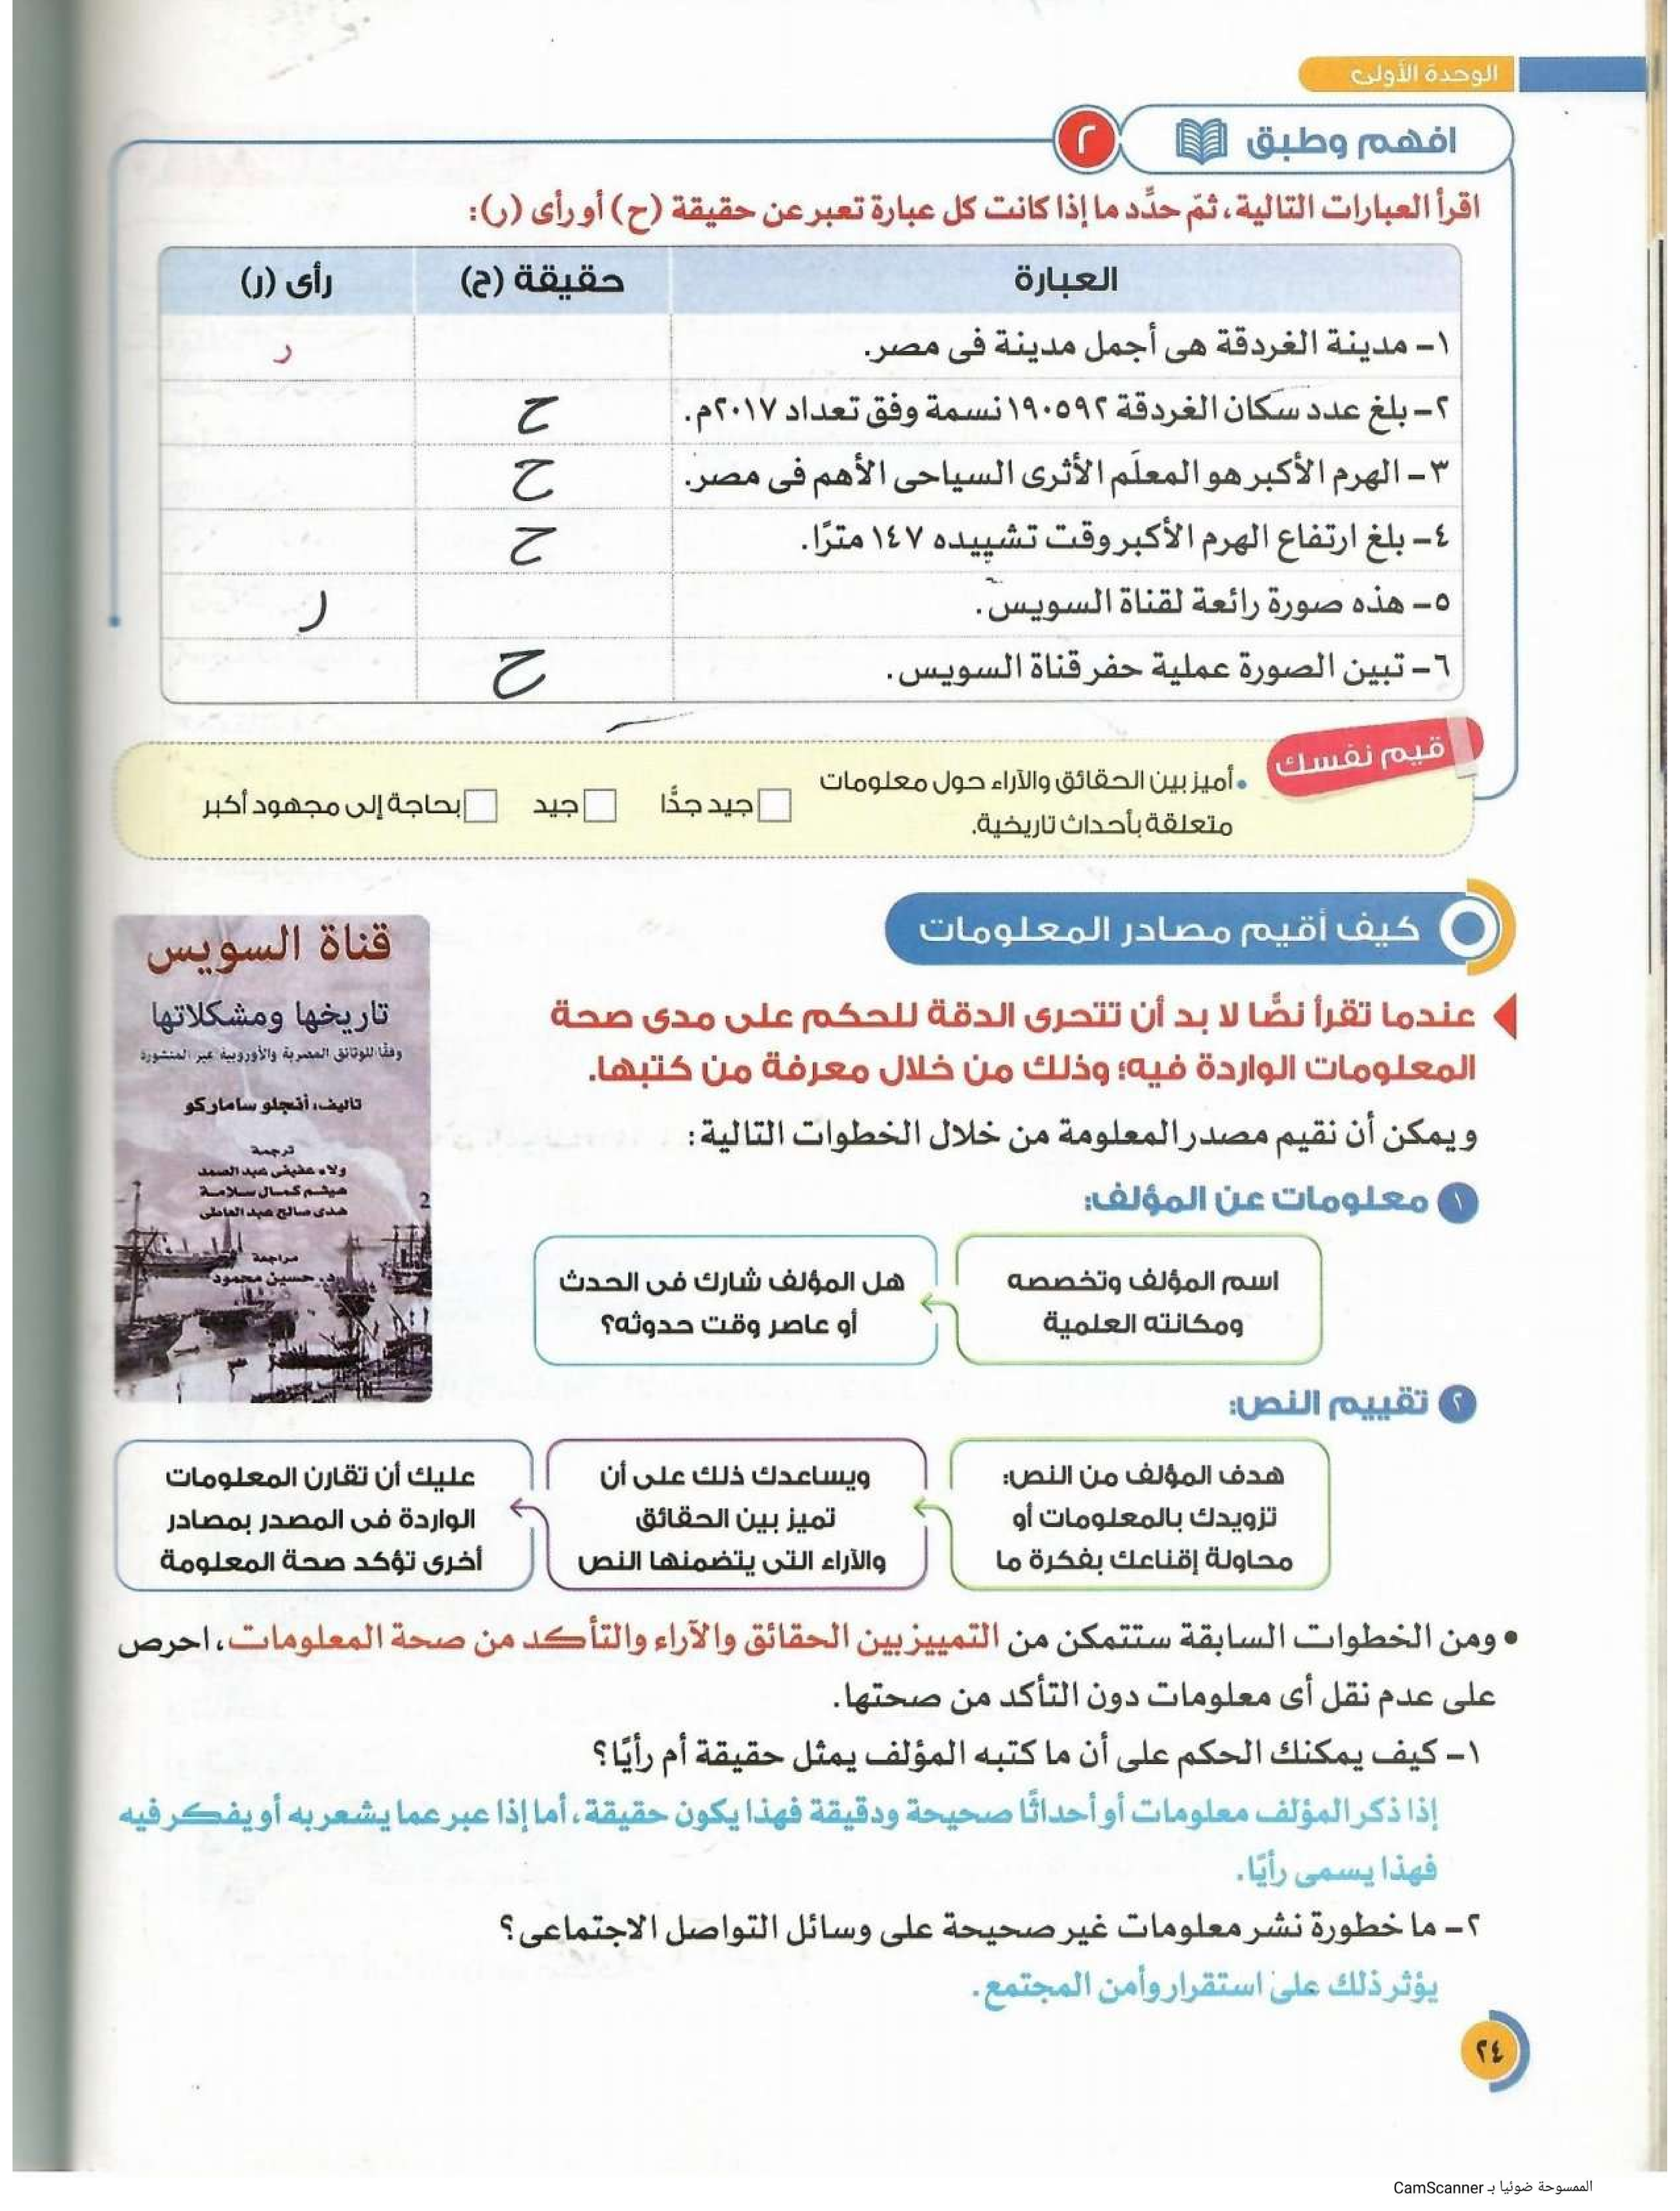 الوحدة الأولى
افهم وطبق
٢
اقرأ العبارات التالية، ثمّ حدِّد ما إذا كانت كل عبارة تعبر عن حقيقة (ح) أو رأى (ر):
العبارة
حقيقة (ح)
رأى (ر)
١- مدينة الغردقة هى أجمل مدينة فى مصر.
ر
٢- بلغ عدد سكان الغردقة ١٩٠٥٩٢ نسمة وفق تعداد ٢٠١٧م.
ح
٣- الهرم الأكبر هو المعلَم الأثرى السياحى الأهم فى مصر.
ح
٤- بلغ ارتفاع الهرم الأكبر وقت تشييده ١٤٧ مترًا.
ح
٥- هذه صورة رائعة لقناة السويس.
ر
٦- تبين الصورة عملية حفر قناة السويس.
ح
قيم نفسك
• أميز بين الحقائق والآراء حول معلومات
متعلقة بأحداث تاريخية.
جيد جدًّا
جيد
بحاجة إلى مجهود أكبر
كيف أقيم مصادر المعلومات
قناة السويس
تاريخها ومشكلاتها
وفقًا للوثائق المصرية والأوروبية غير المنشورة
تاليف، أنجلو ساماركو
ترجمة
ولاء عفيفى عبد الصمد
هيثم كمال سلامة
هدى صالح عبد العاطى
مراجعة
د. حسين محمود
عندما تقرأ نصًّا لا بد أن تتحرى الدقة للحكم على مدى صحة
المعلومات الواردة فيه؛ وذلك من خلال معرفة من كتبها.
ويمكن أن نقيم مصدر المعلومة من خلال الخطوات التالية:
١ معلومات عن المؤلف:
اسم المؤلف وتخصصه
ومكانته العلمية
هل المؤلف شارك فى الحدث
أو عاصر وقت حدوثه؟
٢ تقييم النص:
هدف المؤلف من النص:
تزويدك بالمعلومات أو
محاولة إقناعك بفكرة ما
ويساعدك ذلك على أن
تميز بين الحقائق
والآراء التى يتضمنها النص
عليك أن تقارن المعلومات
الواردة فى المصدر بمصادر
أخرى تؤكد صحة المعلومة
• ومن الخطوات السابقة ستتمكن من التمييز بين الحقائق والآراء والتأكد من صحة المعلومات، احرص
على عدم نقل أى معلومات دون التأكد من صحتها.
١- كيف يمكنك الحكم على أن ما كتبه المؤلف يمثل حقيقة أم رأيًا؟
إذا ذكر المؤلف معلومات أو أحداثًا صحيحة ودقيقة فهذا يكون حقيقة، أما إذا عبر عما يشعر به أو يفكر فيه
فهذا يسمى رأيًا.
٢- ما خطورة نشر معلومات غير صحيحة على وسائل التواصل الاجتماعى؟
يؤثر ذلك على استقرار وأمن المجتمع.
٢٤
الممسوحة ضوئيا بـ CamScanner